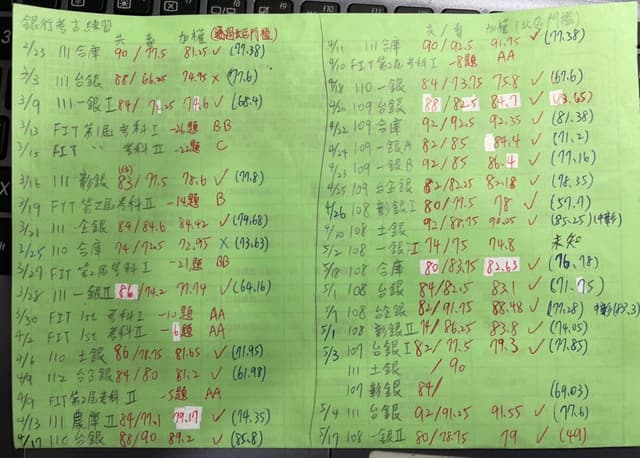 銀行考古練習
共 / 專 加權 (通過北區門檻)
2/23 111 合庫 90 / 77.5 81.25 ✓ (77.38)
3/3 111 台銀 88 / 66.25 74.95 × (77.6)
3/9 111 一銀 I 84 / 71.25 74.6 ✓ (68.4)
3/13 FIT 第1屆 考科I -26題 BB
3/15 FIT 〃 考科II -22題 C
3/16 111 彰銀 83 / 77.5 78.6 ✓ (77.8)
3/19 FIT 第二屆考科II -14題 B
3/21 111 企銀 84 / 84.6 84.42 ✓ (79.68)
2/25 110 合庫 74 / 72.5 72.95 × (73.63)
3/27 FIT 第2屆考科I -21題 BB
3/28 111 一銀II 86 / 74.2 77.74 ✓ (64.16)
3/30 FIT 1st 考科I -10題 AA
4/2 FIT 1st 考科II -6題 AA
4/6 110 土銀 86 / 78.75 81.65 ✓ (71.95)
4/9 112 台企銀 84 / 80 81.2 ✓ (61.98)
4/9 FIT 第2屆考科II -5題 AA
4/13 111 農庫II 84 / 77.1 79.17 ✓ (74.35)
4/17 110 台銀 88 / 90 89.2 ✓ (85.8)
共 / 專 加權 (北區門檻)
4/11 111 合庫 90 / 92.5 91.75 ✓ (77.38)
4/10 FIT 第2屆考科I -8題 AA
4/18 110 一銀 84 / 73.75 75.8 ✓ (67.6)
4/20 109 台銀 88 / 82.5 84.7 ✓ (73.65)
4/22 109 合庫 92 / 92.5 92.35 ✓ (81.38)
4/24 109 一銀A 82 / 85 84.4 ✓ (71.2)
4/23 109 一銀B 92 / 85 86.4 ✓ (77.16)
4/25 109 台企銀 82 / 82.25 82.18 ✓ (78.35)
4/26 108 彰銀I 80 / 77.5 78 ✓ (57.7)
4/20 108 土銀 92 / 88.75 90.05 ✓ (85.25) 中彰
5/2 108 一銀I 74 / 75 74.8 未知
5/18 108 合庫 80 / 83.75 82.63 ✓ (76.78)
5/1 108 台銀 84 / 82.5 83.1 ✓ (71.75)
5/1 108 台銀 82 / 91.75 88.48 ✓ (77.28) 中彰(83.3)
5/1 108 彰銀II 74 / 86.25 83.8 ✓ (74.05)
5/3 107 台銀I 82 / 77.5 79.3 ✓ (77.85)
111 土銀 / 90
107 彰銀 84 / (69.03)
5/4 111 台銀 92 / 91.25 91.55 ✓ (77.6)
5/17 108 一銀II 80 / 78.75 79 ✓ (49)